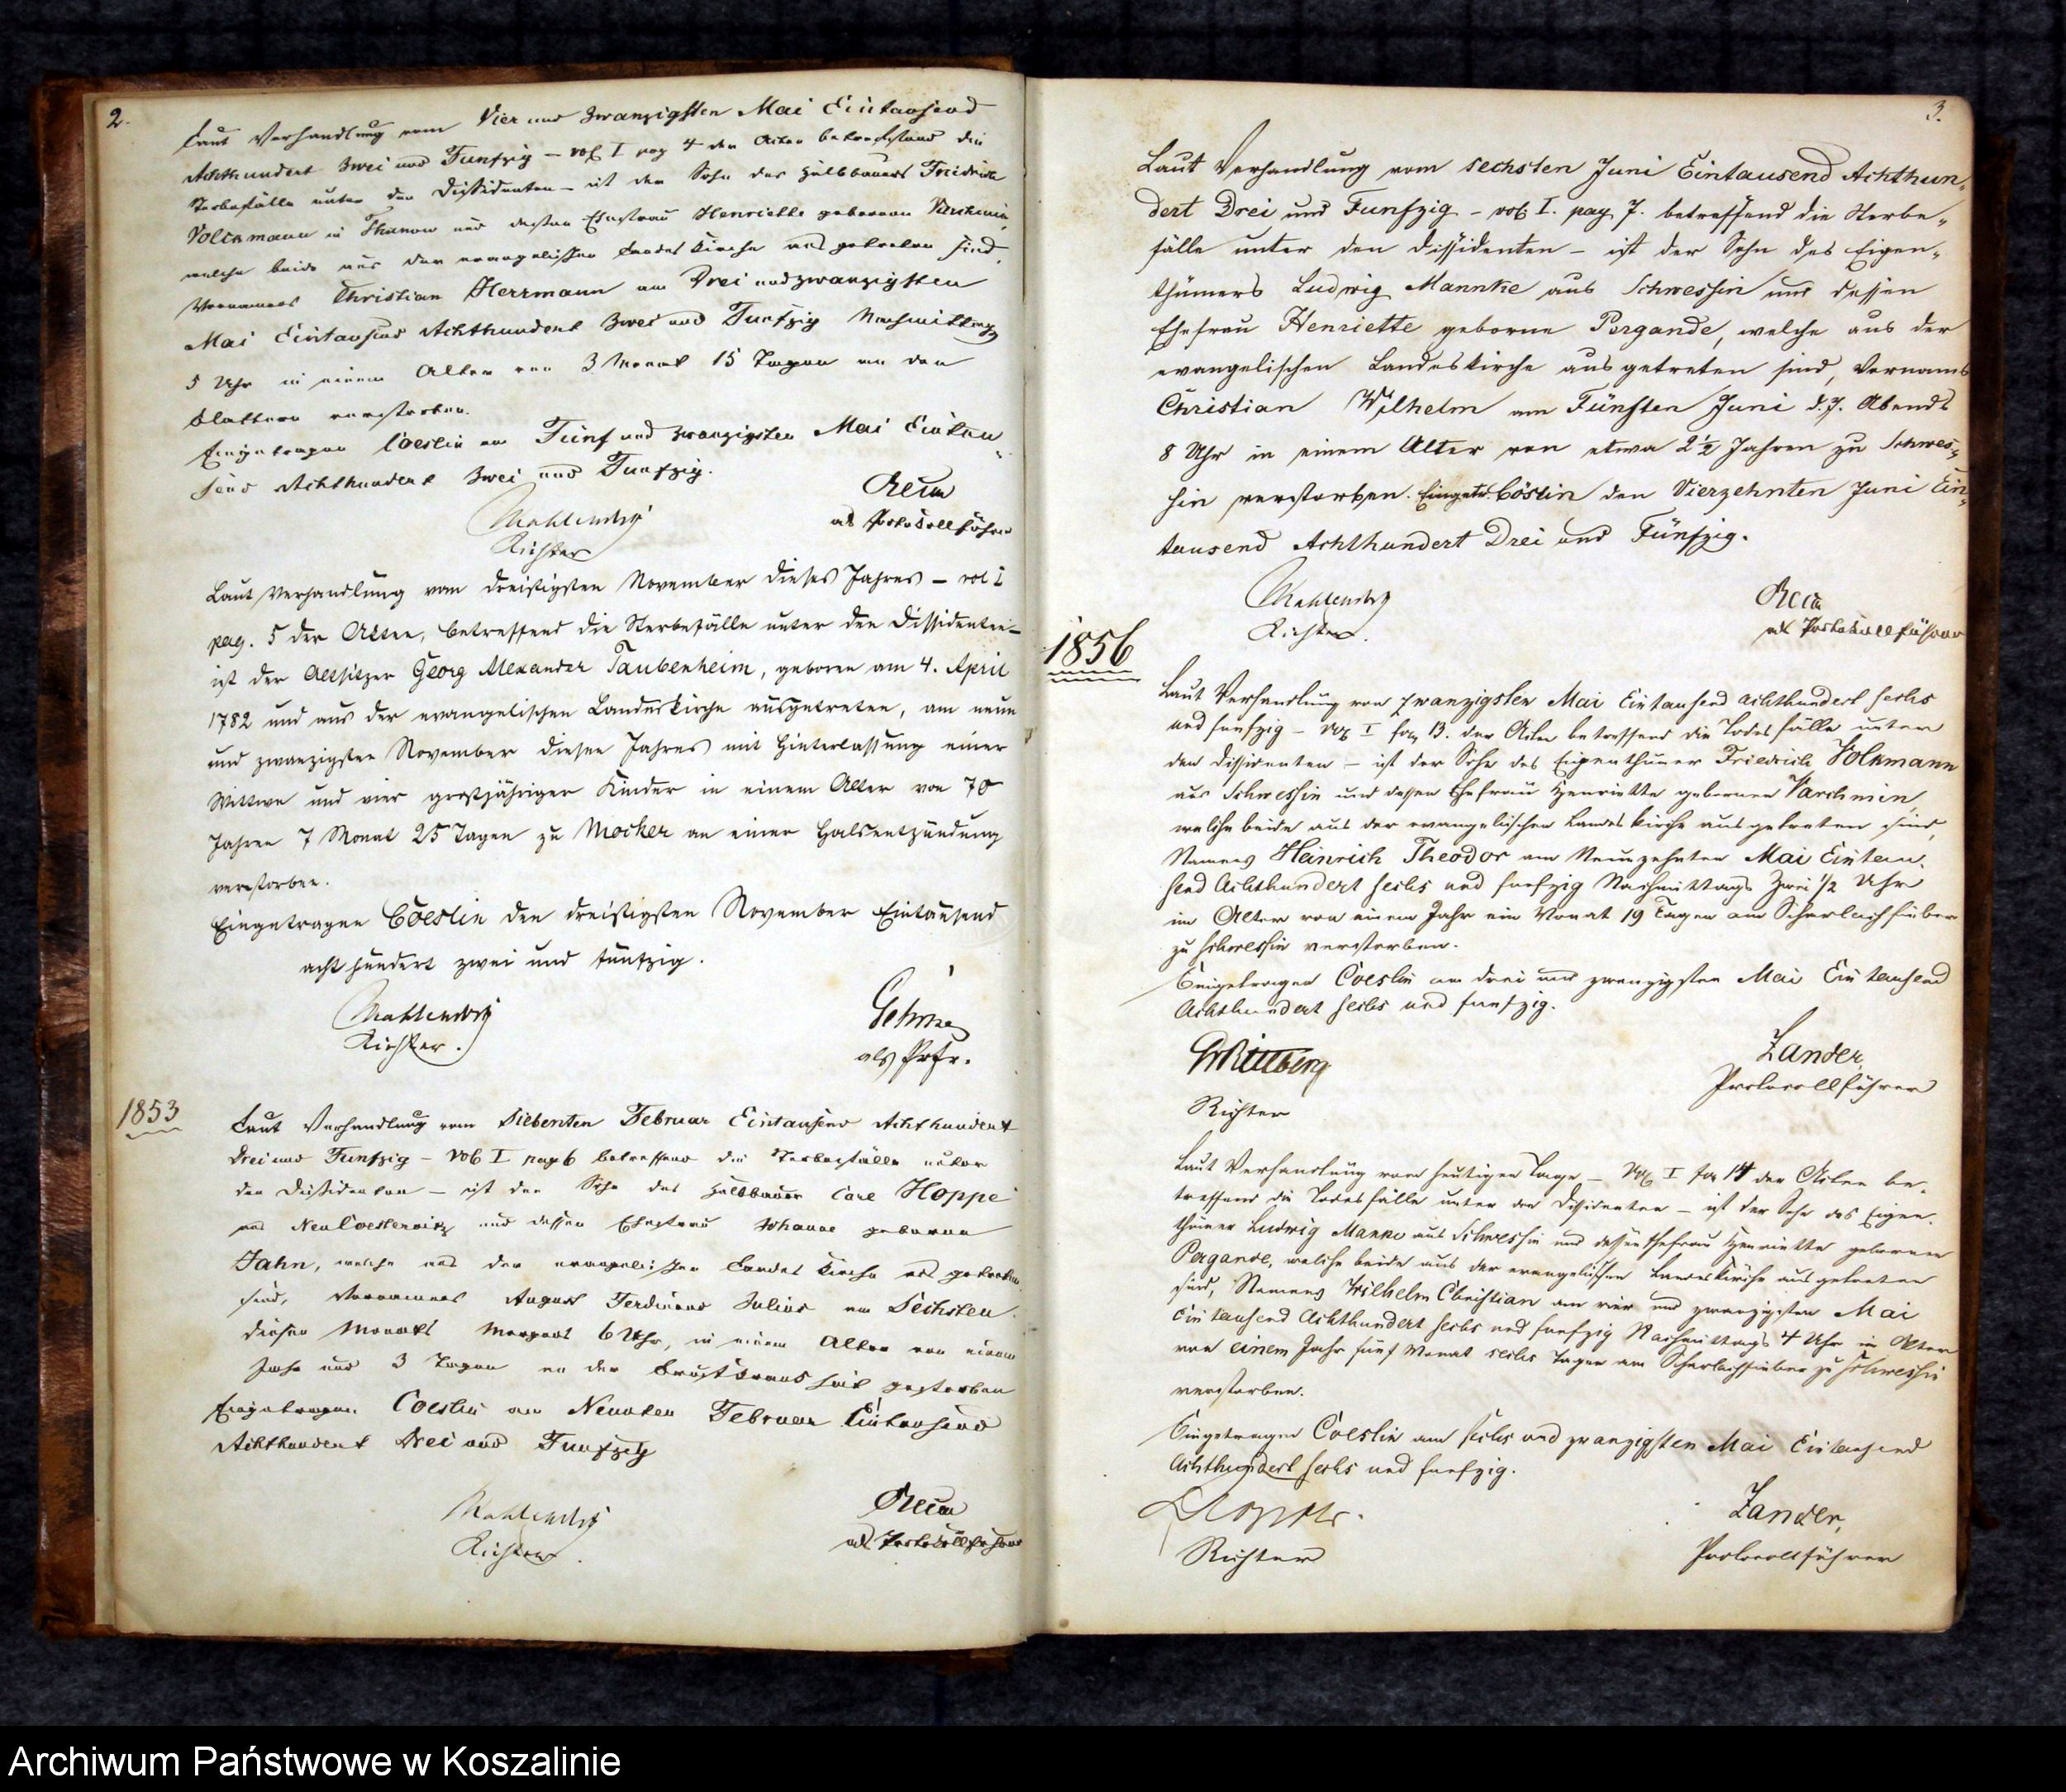 2.
Laut Verhandlung vom Vier und Zwanzigsten Mai Eintausend
Achthundert Zwei und Funfzig – vol I pag 4 der Acten betreffend die
Sterbefälle unter den Dissidenten – ist der Sohn des Halbbauers Friedrich
Volckmann in Thunow und dessen Ehefrau Henriette geborene Varchmin,
welche beide aus der evangelischen Landes Kirche ausgetreten sind,
Vornamens Christian Herrmann am Drei und zwanzigsten
Mai Eintausend Achthundert Zwei und Funfzig Nachmittags
5 Uhr in einem Alter von 3 Monat 15 Tagen an den
Blattern verstorben.
Eingetragen Coeslin am Fünf und zwanzigsten Mai Eintau„
send Achthundert Zwei und Funfzig.
Richter
als Protokollführer
Laut Verhandlung vom dreißigsten November dieses Jahres – vol I
pag. 5 der Akten, betreffend die Sterbefälle unter den Dissidenten –
ist der Altsitzer Georg Alexander Taubenheim, geboren am 4. April
1782 und aus der evangelischen Landeskirche ausgetreten, am neun
und zwanzigsten November dieses Jahres mit Hinterlassung einer
Wittwe und vier großjähriger Kinder in einem Alter von 70
Jahren 7 Monat 25 Tagen zu Mocker an einer Halsentzündung
verstorben.
Eingetragen Coeslin den dreißigsten November Eintausend
acht hundert zwei und fünfzig.
Richter.
als Prfr.
1853
Laut Verhandlung vom Siebenten Februar Eintausend Achthundert
Drei und Funfzig – vol I pag 6 betreffend die Sterbefälle unter
den Dissidenten – ist der Sohn des Halbbauer Carl Hoppe
aus und dessen Ehefrau Johanne geborene
Jahn, welche aus der evangelischen Landes Kirche ausgetreten
sind, Vornamens August Ferdinand Julius am Sechsten
dieses Monats Morgens 6 Uhr, in einem Alter von einem
Jahr und 3 Tagen an der Brustkrankheit gestorben
Eingetragen Coeslin am Neunten Februar Eintausend
Achthundert Drei und Funfzig
Richter.
als Protokollführer
3.
Laut Verhandlung vom sechsten Juni Eintausend Achthun„
dert Drei und Funfzig – vol I. pag 7. betreffend die Sterbe„
fälle unter den Dissidenten – ist der Sohn des Eigen„
thümers Ludwig Mannke aus Schwessin und dessen
Ehefrau Henriette geborne Pergande, welche aus der
evangelischen Landeskirche ausgetreten sind, Vornamens
Christian Wilhelm am Fünften Juni d.J. Abends
8 Uhr in einem Alter von etwa 2½ Jahren zu Schwes„
sin verstorben. Eingetr. Cöslin den Vierzehnten Juni Ein„
tausend Achthundert Drei und Fünfzig.
Richter.
als Protokollführer
1856
Laut Verhandlung von zwanzigsten Mai Eintausend achthundert sechs
und funfzig – Vol I fol 13. der Acten betreffend die Todesfälle unter
den Dissidenten – ist der Sohn des Eigenthümer Friedrich Volkmann
aus Schwessin und dessen Ehefrau Henriette geborenen Varchmin,
welche beide aus der evangelischen Landeskirche ausgetreten sind,
Namens Heinrich Theodor am Neunzehnten Mai Eintau„
send Achthundert sechs und funfzig Nachmittags Zwei ½ Uhr
im Alter von einem Jahr ein Monat 19 Tagen am Scharlachfieber
zu Schwessin verstorben.
Eingetragen Coeslin am drei und zwanzigsten Mai Eintausend
Achthundert sechs und funfzig.
Richter
Zander,
Protocollführer
Laut Verhandlung vom heutigen Tage – Vol I fol 14 der Acten be„
treffend die Todesfälle unter den Dissidenten – ist der Sohn des Eigen„
thümer Ludwig Manke aus Schwessin und dessen Ehefrau Henriette geborenen
Pergande, welche beide aus der evangelischen Landeskirche ausgetreten
sind, Namens Wilhelm Christian am vier und zwanzigsten Mai
Eintausend Achthundert sechs und funfzig Nachmittags 4 Uhr im Alter
von einem Jahr fünf Monat sechs Tagen am Scharlachfieber zu Schwessin
verstorben.
Eingetragen Coeslin am sechs und zwanzigsten Mai Eintausend
Achthundert sechs und funfzig.
Richter
Zander,
Protocollführer
Archiwum Państwowe w Koszalinie